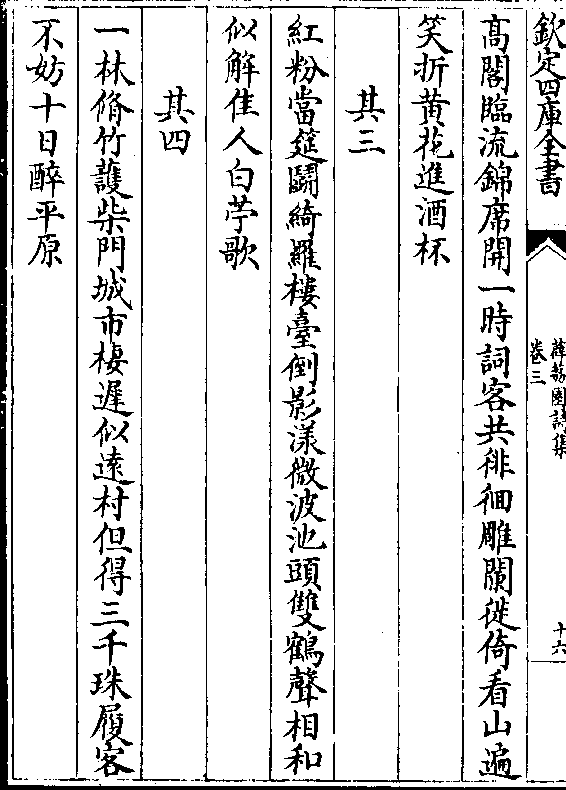 欽定四庫全書
薜荔園詩集
卷三
十六
髙閣臨流錦席開一時詞客共徘徊雕闌徙倚看山遍
笑折黄花進酒杯
其三
紅粉當筵鬭綺羅樓臺倒影漾微波池頭雙鶴聲相和
似解佳人白苧歌
其四
一林脩竹護柴門城市棲遲似遠村但得三千珠履客
不妨十日醉平原